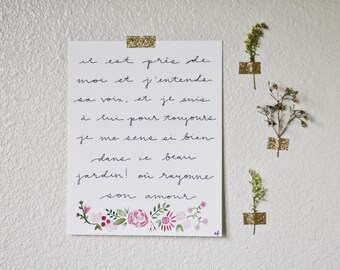 il est près de
moi et j'entends
sa voix, et je suis
à lui pour toujours
je me sens si bien
dans ce beau
jardin! où rayonne
son amour